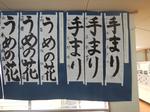 手まり
手まり
手まり
うめの花
うめの花
うめの花